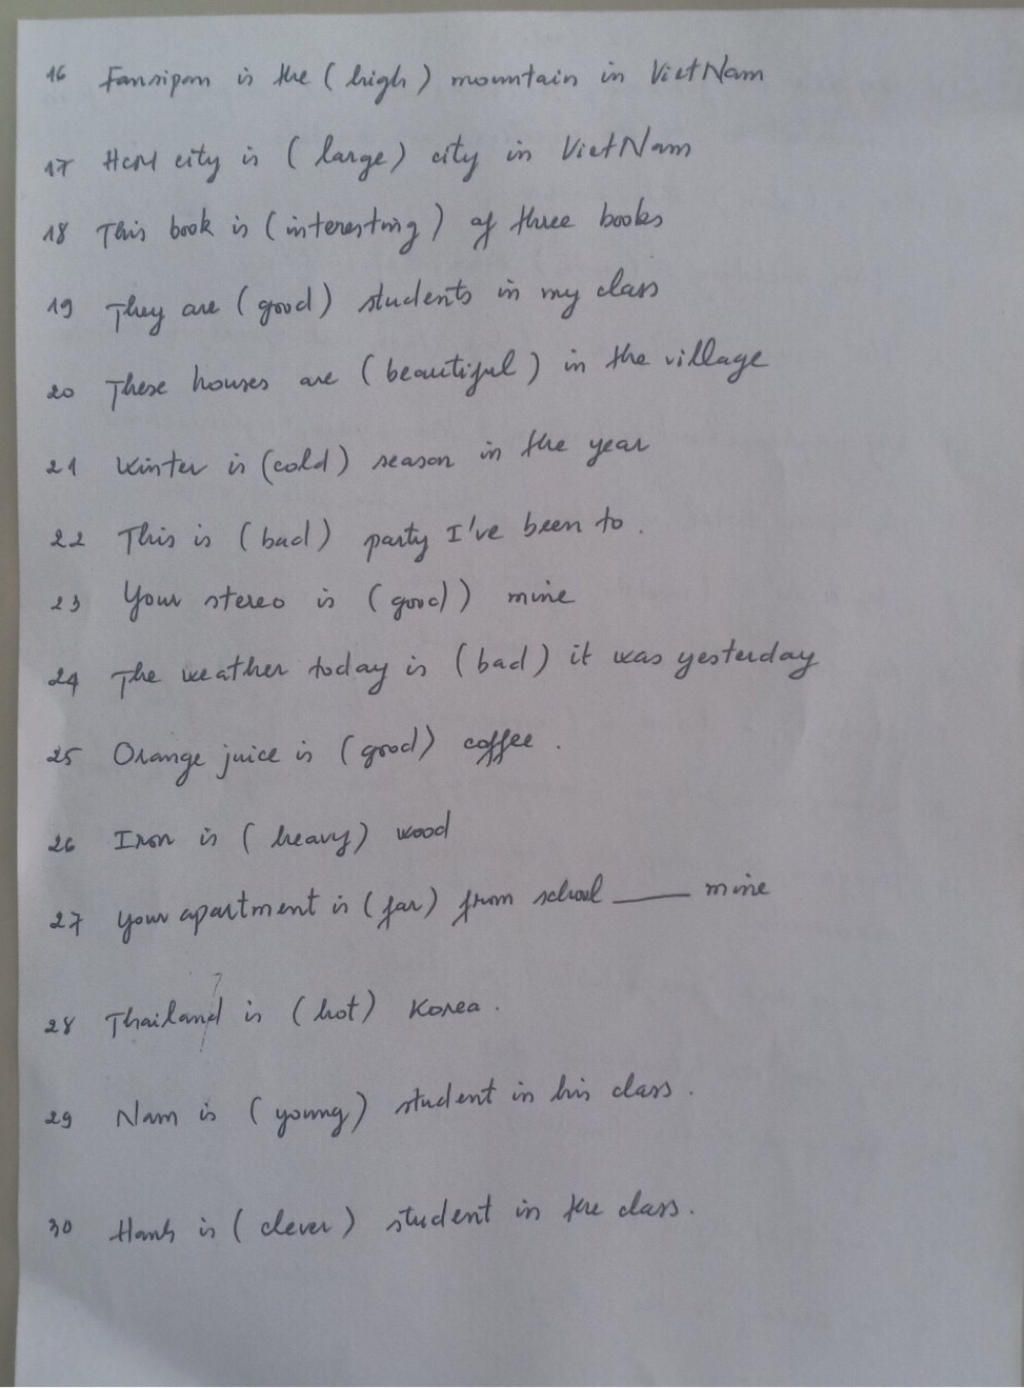 16 Fansipan is the ( high ) mountain in Viet Nam
17 HCM city is ( large ) city in Viet Nam
18 This book is ( interesting ) of three books
19 They are ( good ) students in my class
20 These houses are ( beautiful ) in the village
21 Winter is (cold ) season in the year
22 This is ( bad ) party I've been to .
23 Your stereo is ( good ) mine
24 The weather today is ( bad ) it was yesterday
25 Orange juice is ( good ) coffee .
26 Iron is ( heavy ) wood
27 Your apartment is ( far ) from school ____ mine
28 Thailand is ( hot ) Korea .
29 Nam is ( young ) student in his class .
30 Hanh is ( clever ) student in the class .